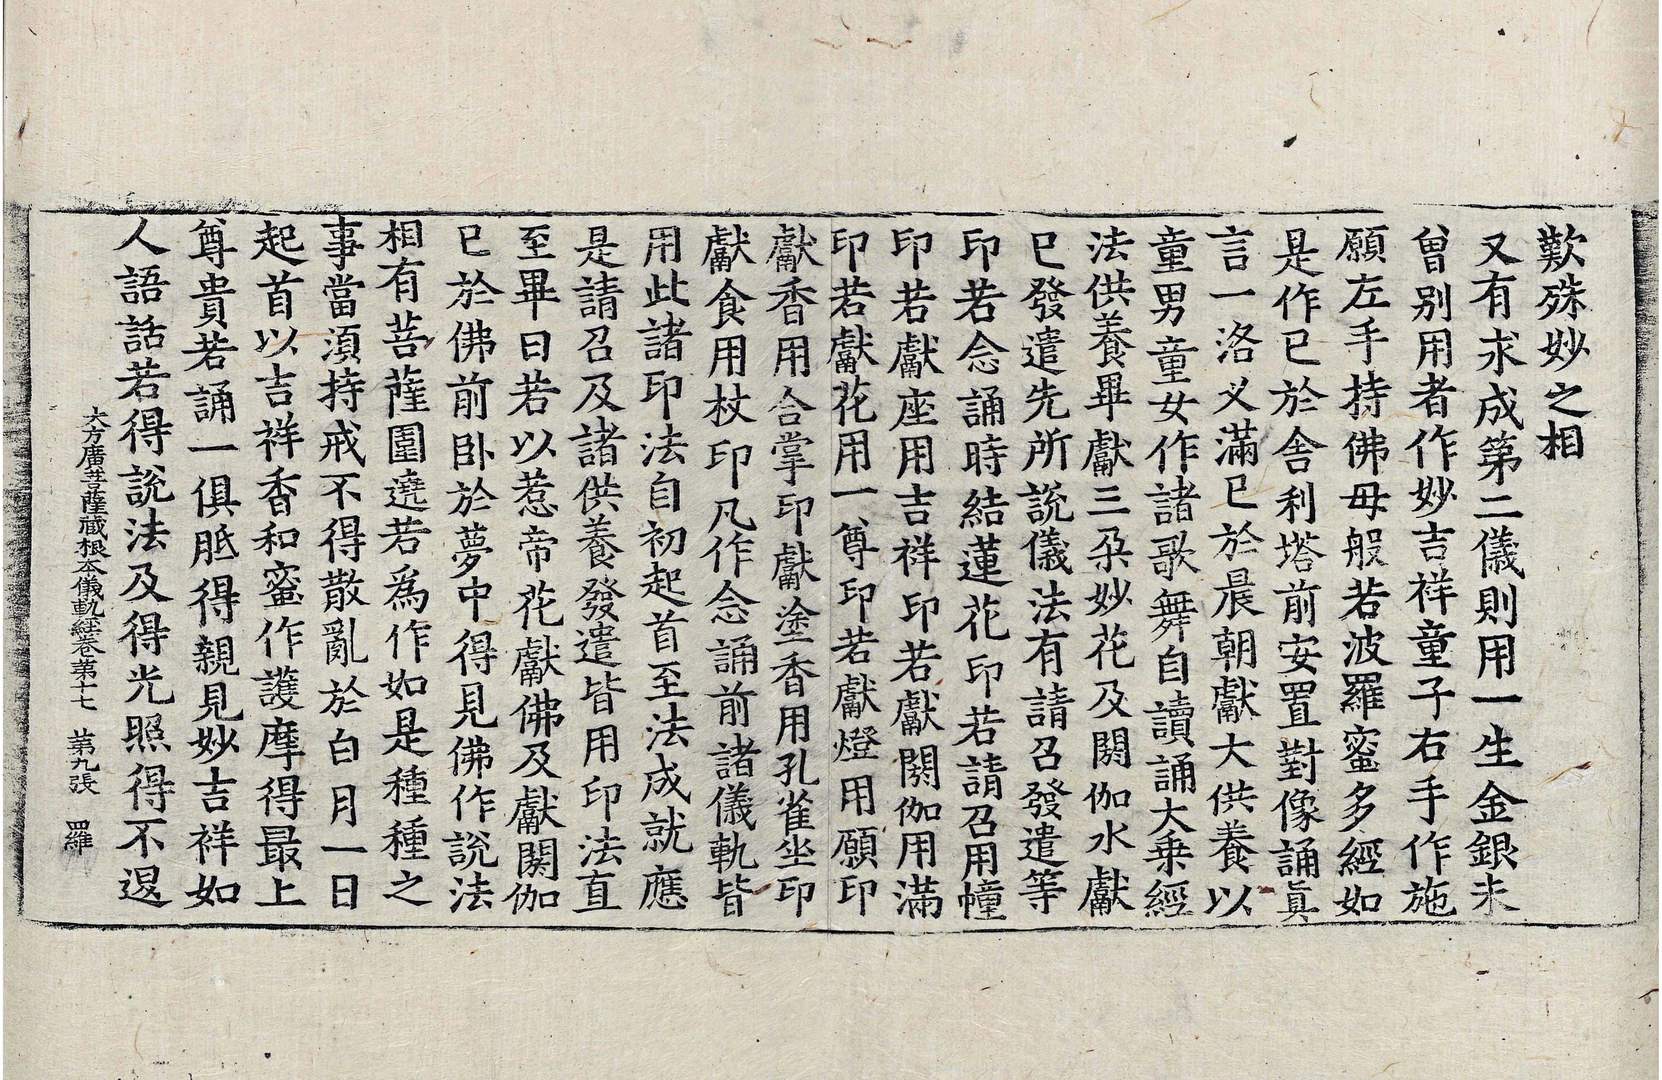 歎殊妙之相
又有求成第二儀則用一生金銀未
曾别用者作妙吉祥童子右手作施
願左手持佛母般若波羅蜜多經如
是作已於舍利塔前安置對像誦眞
言一洛叉滿已於晨朝獻大供養以
童男童女作諸歌舞自讀誦大乗經
法供養畢獻三朶妙花及閼伽水獻
已發遣先所説儀法有請召發遣等
印若念誦時結蓮花印若請召用幢
印若獻座用吉祥印若獻閼伽用滿
印若獻花用一尊印若獻燈用願印
獻香用合掌印獻塗香用孔雀坐印
獻食用杖印凡作念誦前諸儀軌皆
用此諸印法自初起首至法成就應
是請召及諸供養發遣皆用印法直
至畢日若以惹帝花獻佛及獻閼伽
已於佛前卧於夢中得見佛作説法
相有菩薩圍遶若爲作如是種種之
事當須持戒不得散亂於白月一日
起首以吉祥香和蜜作護摩得最上
尊貴若誦一俱胝得親見妙吉祥如
人語話若得説法及得光照得不退
大方廣菩薩藏根本儀軌經卷第十七　第九張　羅